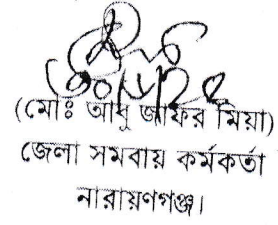 (মোঃ আবু জাফর মিয়া)
জেলা সমবায় কর্মকর্তা
নারায়ণগঞ্জ।